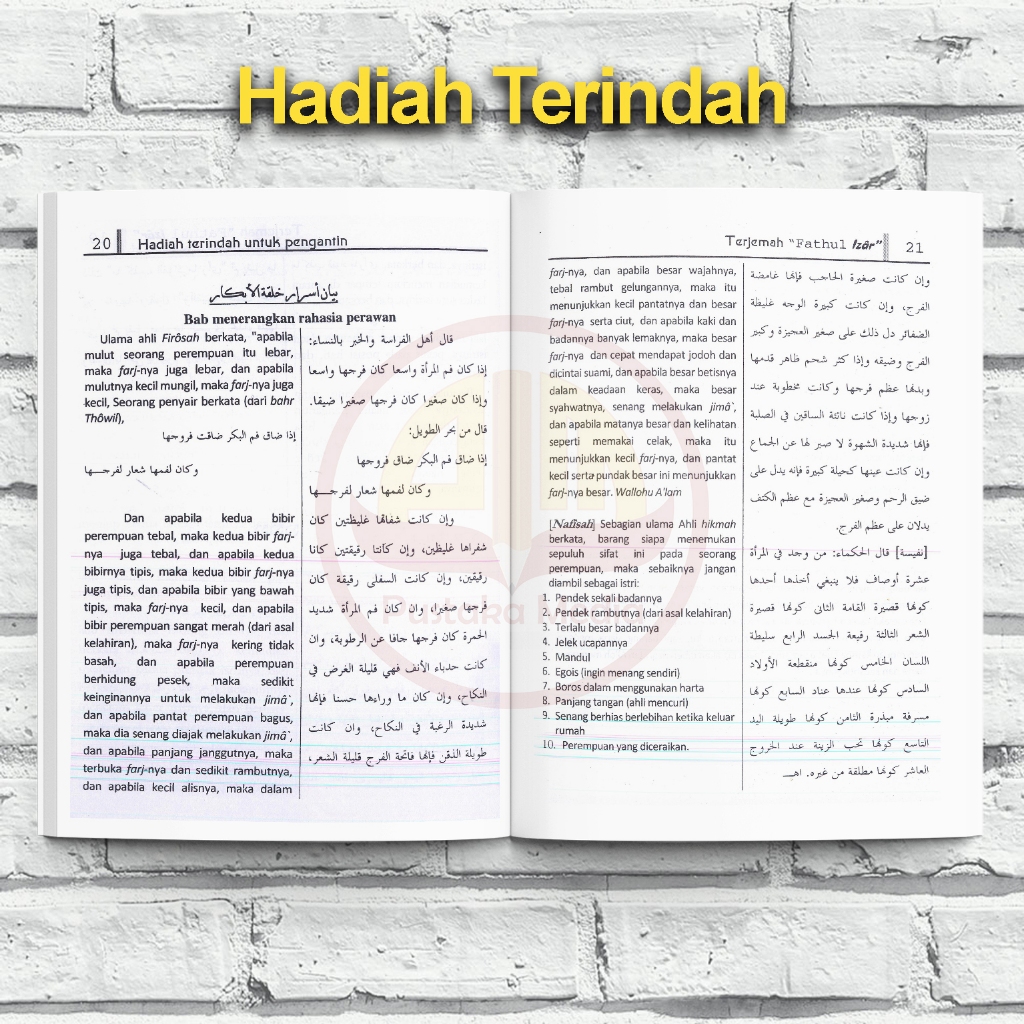 Hadiah Terindah
20 Hadiah terindah untuk pengantin
بيان أسرار خلقة الأبكار
Bab menerangkan rahasia perawan
Ulama ahli Firôsah berkata, "apabila
mulut seorang perempuan itu lebar,
maka farj-nya juga lebar, dan apabila
mulutnya kecil mungil, maka farj-nya juga
kecil, Seorang penyair berkata (dari bahr
Thôwil),
إذا ضاق فم البكر ضاقت فروجها
وكان لفمها شعار لفرجـــها
Dan apabila kedua bibir
perempuan tebal, maka kedua bibir farj-
nya juga tebal, dan apabila kedua
bibirnya tipis, maka kedua bibir farj-nya
juga tipis, dan apabila bibir yang bawah
tipis, maka farj-nya kecil, dan apabila
bibir perempuan sangat merah (dari asal
kelahiran), maka farj-nya kering tidak
basah, dan apabila perempuan
berhidung pesek, maka sedikit
keinginannya untuk melakukan jimâ`,
dan apabila pantat perempuan bagus,
maka dia senang diajak melakukan jimâ`,
dan apabila panjang janggutnya, maka
terbuka farj-nya dan sedikit rambutnya,
dan apabila kecil alisnya, maka dalam
قال أهل الفراسة والخبر بالنساء:
إذا كان فم المرأة واسعا كان فرجها واسعا
وإذا كان صغيرا كان فرجها صغيرا ضيقا.
قال من بحر الطويل:
إذا ضاق فم البكر ضاق فروجها
وكان لفمها شعار لفرجـــها
وإن كانت شفاها غليظتين كان
شفراها غليظين، وإن كانتا رقيقتين كانا
رقيقين، وإن كانت السفلى رقيقة كان
فرجها صغيرا، وان كان فم المرأة شديد
الحمرة كان فرجها جافا عن الرطوبة، وان
كانت حدباء الأنف فهي قليلة الغرض في
النكاح، وإن كان ما وراءها حسنا فإنها
شديدة الرغبة في النكاح، وان كانت
طويلة الذقن فإنها فاتحة الفرج قليلة الشعر،
Terjemah "Fathul Izâr" 21
farj-nya, dan apabila besar wajahnya,
tebal rambut gelungannya, maka itu
menunjukkan kecil pantatnya dan besar
farj-nya serta ciut, dan apabila kaki dan
badannya banyak lemaknya, maka besar
farj-nya dan cepat mendapat jodoh dan
dicintai suami, dan apabila besar betisnya
dalam keadaan keras, maka besar
syahwatnya, senang melakukan jimâ`,
dan apabila matanya besar dan kelihatan
seperti memakai celak, maka itu
menunjukkan kecil farj-nya, dan pantat
kecil serta pundak besar ini menunjukkan
farj-nya besar. Wallohu A'lam
[Nafîsah] Sebagian ulama Ahli hikmah
berkata, barang siapa menemukan
sepuluh sifat ini pada seorang
perempuan, maka sebaiknya jangan
diambil sebagai istri:
1. Pendek sekali badannya
2. Pendek rambutnya (dari asal kelahiran)
3. Terlalu besar badannya
4. Jelek ucapannya
5. Mandul
6. Egois (ingin menang sendiri)
7. Boros dalam menggunakan harta
8. Panjang tangan (ahli mencuri)
9. Senang berhias berlebihan ketika keluar
rumah
10. Perempuan yang diceraikan.
وإن كانت صغيرة الحاجب فإنها غامضة
الفرج، وإن كانت كبيرة الوجه غليظة
الضفائر دل ذلك على صغير العجيزة وكبير
الفرج وضيقه وإذا كثر شحم ظاهر قدمها
وبدنها عظم فرجها وكانت مخطوبة عند
زوجها وإذا كانت ناتئة الساقين في الصلبة
فإنها شديدة الشهوة لا صبر لها عن الجماع
وإن كانت عينها كحيلة كبيرة فإنه يدل على
ضيق الرحم وصغير العجيزة مع عظم الكتف
يدلان على عظم الفرج.
[نفيسة] قال الحكماء: من وجد في المرأة
عشرة أوصاف فلا ينبغي أخذها أحدها
كونها قصيرة القامة الثاني كونها قصيرة
الشعر الثالثة رفيعة الجسد الرابع سليطة
اللسان الخامس كونها منقطعة الأولاد
السادس كونها عندها عناد السابع كونها
مسرفة مبذرة الثامن كونها طويلة اليد
التاسع كونها تحب الزينة عند الخروج
العاشر كونها مطلقة من غيره. اهـ